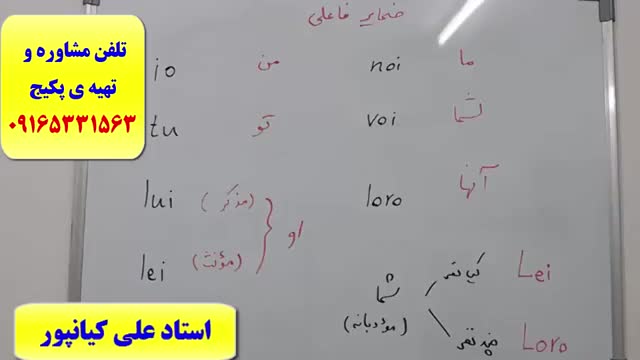 تلفن مشاوره و
تهیه ی پکیج
۰۹۱۶۵۳۳۱۵۶۳
ضمایر فاعلی
ما noi من io
شما voi تو tu
آنها loro او (مذکر) lui
(مؤنث) lei
شما (مؤدبانه) یک نفر Lei
چند نفر Loro
استاد علی کیانپور